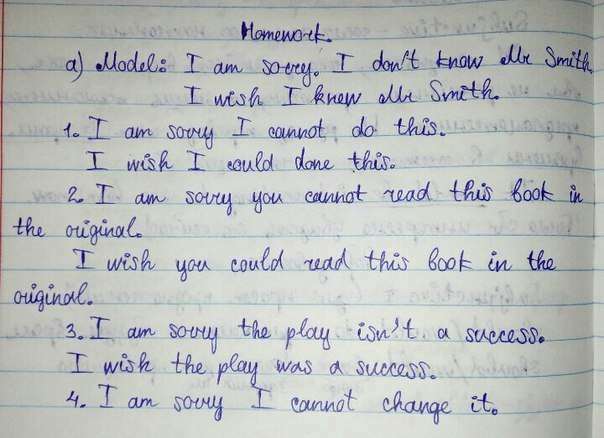 Homework.
a) Model: I am sorry. I don't know Mr Smith.
I wish I knew Mr Smith.
1. I am sorry I cannot do this.
I wish I could done this.
2. I am sorry you cannot read this book in
the original.
I wish you could read this book in the
original.
3. I am sorry the play isn't a success.
I wish the play was a success.
4. I am sorry I cannot change it.